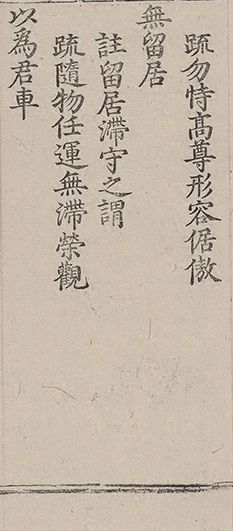 疏勿恃高尊形容倨傲
無留居
註留居滯守之謂
疏隨物任運無滯榮觀
以為君車